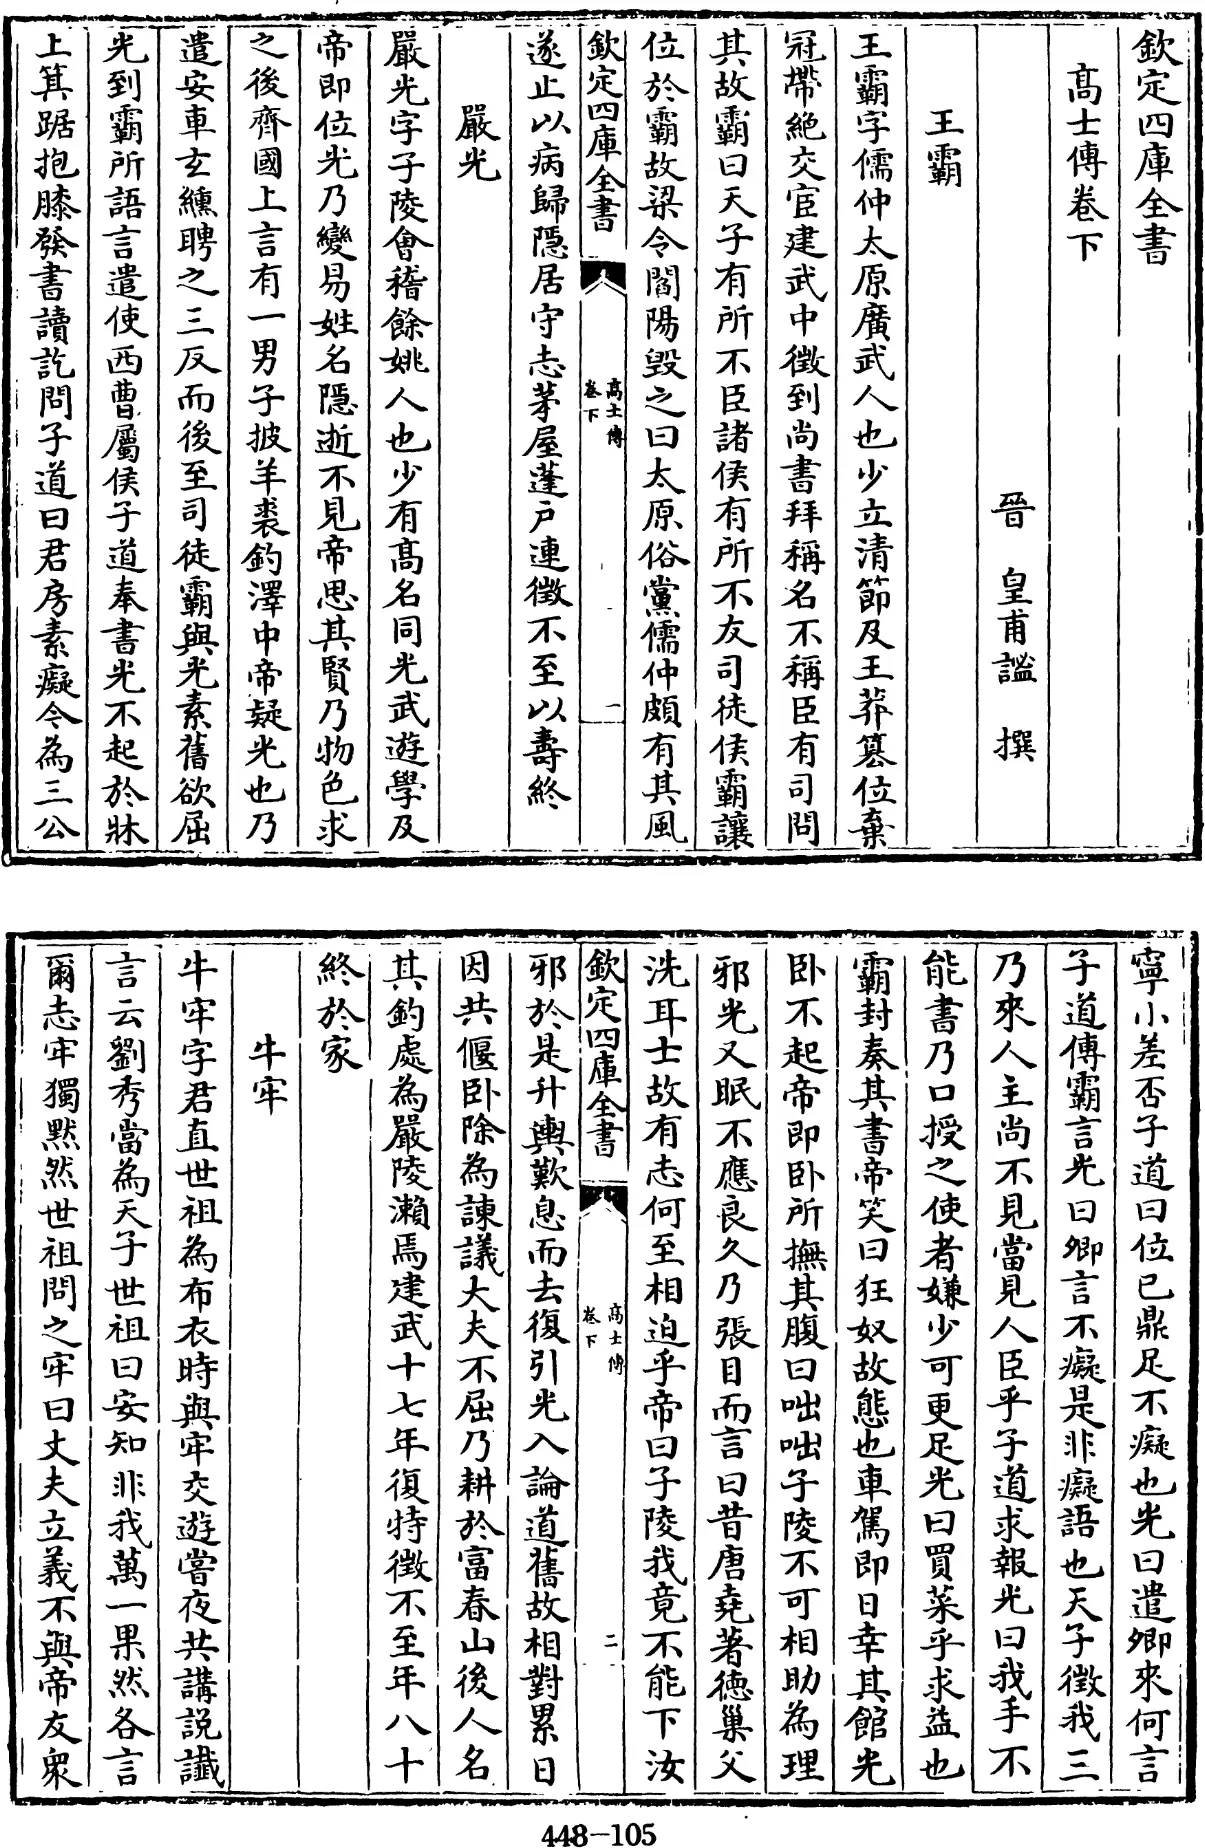 欽定四庫全書
髙士傳卷下
晉 皇甫謐 撰
王霸
王霸字儒仲太原廣武人也少立清節及王莽簒位棄
冠帶絶交宦建武中徴到尚書拜稱名不稱臣有司問
其故霸曰天子有所不臣諸侯有所不友司徒侯霸讓
位於霸故梁令閻陽毁之曰太原俗黨儒仲頗有其風
欽定四庫全書
髙士傳
卷下
一
遂止以病歸隱居守志茅屋蓬户連徴不至以壽終
嚴光
嚴光字子陵會稽餘姚人也少有髙名同光武遊學及
帝即位光乃變易姓名隱逝不見帝思其賢乃物色求
之後齊國上言有一男子披羊裘釣澤中帝疑光也乃
遣安車玄纁聘之三反而後至司徒霸與光素舊欲屈
光到霸所語言遣使西曹屬侯子道奉書光不起於牀
上箕踞抱膝發書讀訖問子道曰君房素癡今為三公
寧小差否子道曰位已鼎足不癡也光曰遣卿來何言
子道傳霸言光曰卿言不癡是非癡語也天子徴我三
乃來人主尚不見當見人臣乎子道求報光曰我手不
能書乃口授之使者嫌少可更足光曰買菜乎求益也
霸封奏其書帝笑曰狂奴故態也車駕即日幸其館光
卧不起帝即卧所撫其腹曰咄咄子陵不可相助為理
邪光又眠不應良久乃張目而言曰昔唐堯著德巢父
洗耳士故有志何至相迫乎帝曰子陵我竟不能下汝
欽定四庫全書
髙士傳
卷下
二
邪於是升輿歎息而去復引光入論道舊故相對累日
因共偃卧除為諫議大夫不屈乃耕於富春山後人名
其釣處為嚴陵瀨焉建武十七年復特徴不至年八十
終於家
牛牢
牛牢字君直世祖為布衣時與牢交遊嘗夜共講説讖
言云劉秀當為天子世祖曰安知非我萬一果然各言
爾志牢獨黙然世祖問之牢曰丈夫立義不與帝友衆
448-105